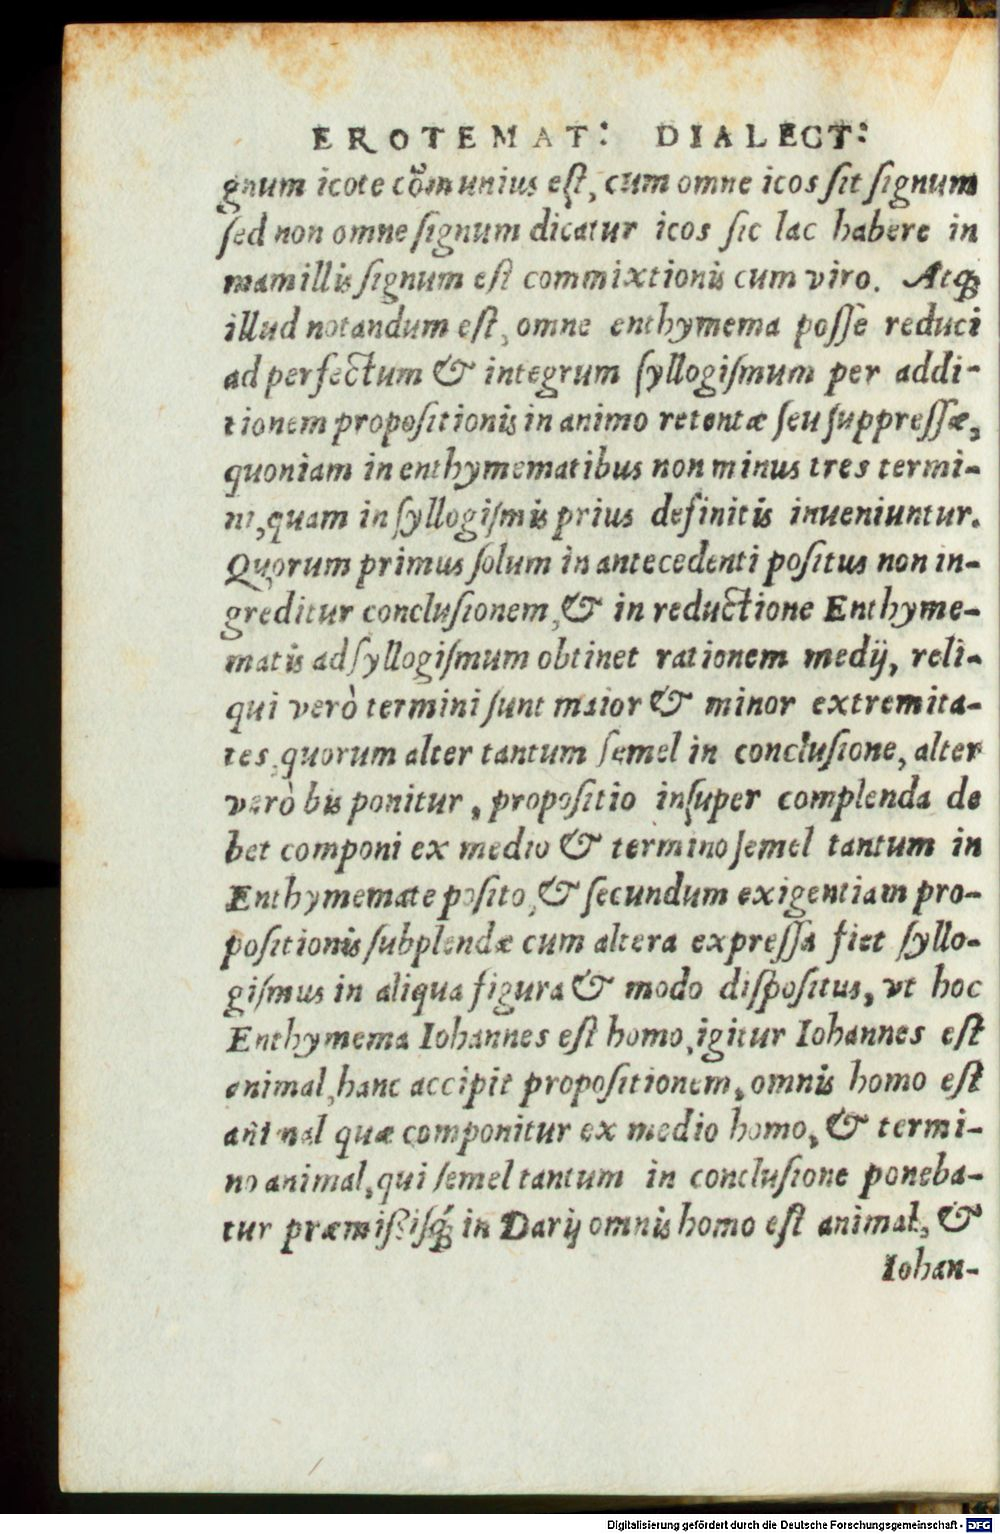 EROTEMAT: DIALECT:
gnum icote cõmunius est, cum omne icos sit signum
sed non omne signum dicatur icos sic lac habere in
mamillis signum est commixtionis cum viro. Atq́;
illud notandum est, omne enthymema posse reduci
ad perfectum & integrum syllogismum per addi-
tionem propositionis in animo retentæ seu suppressæ,
quoniam in enthymematibus non minus tres termi-
ni, quam in syllogismis prius definitis inueniuntur.
Quorum primus solum in antecedenti positus non in-
greditur conclusionem, & in reductione Enthyme-
matis ad syllogismum obtinet rationem medij, reli-
qui verò termini sunt maior & minor extremita-
tes, quorum alter tantum semel in conclusione, alter
verò bis ponitur, propositio insuper complenda de
bet componi ex medio & termino semel tantum in
Enthymemate posito, & secundum exigentiam pro-
positionis subplendæ cum altera expressa fiet syllo-
gismus in aliqua figura & modo dispositus, vt hoc
Enthymema Iohannes est homo, igitur Iohannes est
animal, hanc accipit propositionem, omnis homo est
animal quæ componitur ex medio homo, & termi-
no animal, qui semel tantum in conclusione poneba-
tur præmißisq́; in Darij omnis homo est animal, &
Iohan-
Digitalisierung gefördert durch die Deutsche Forschungsgemeinschaft - DFG